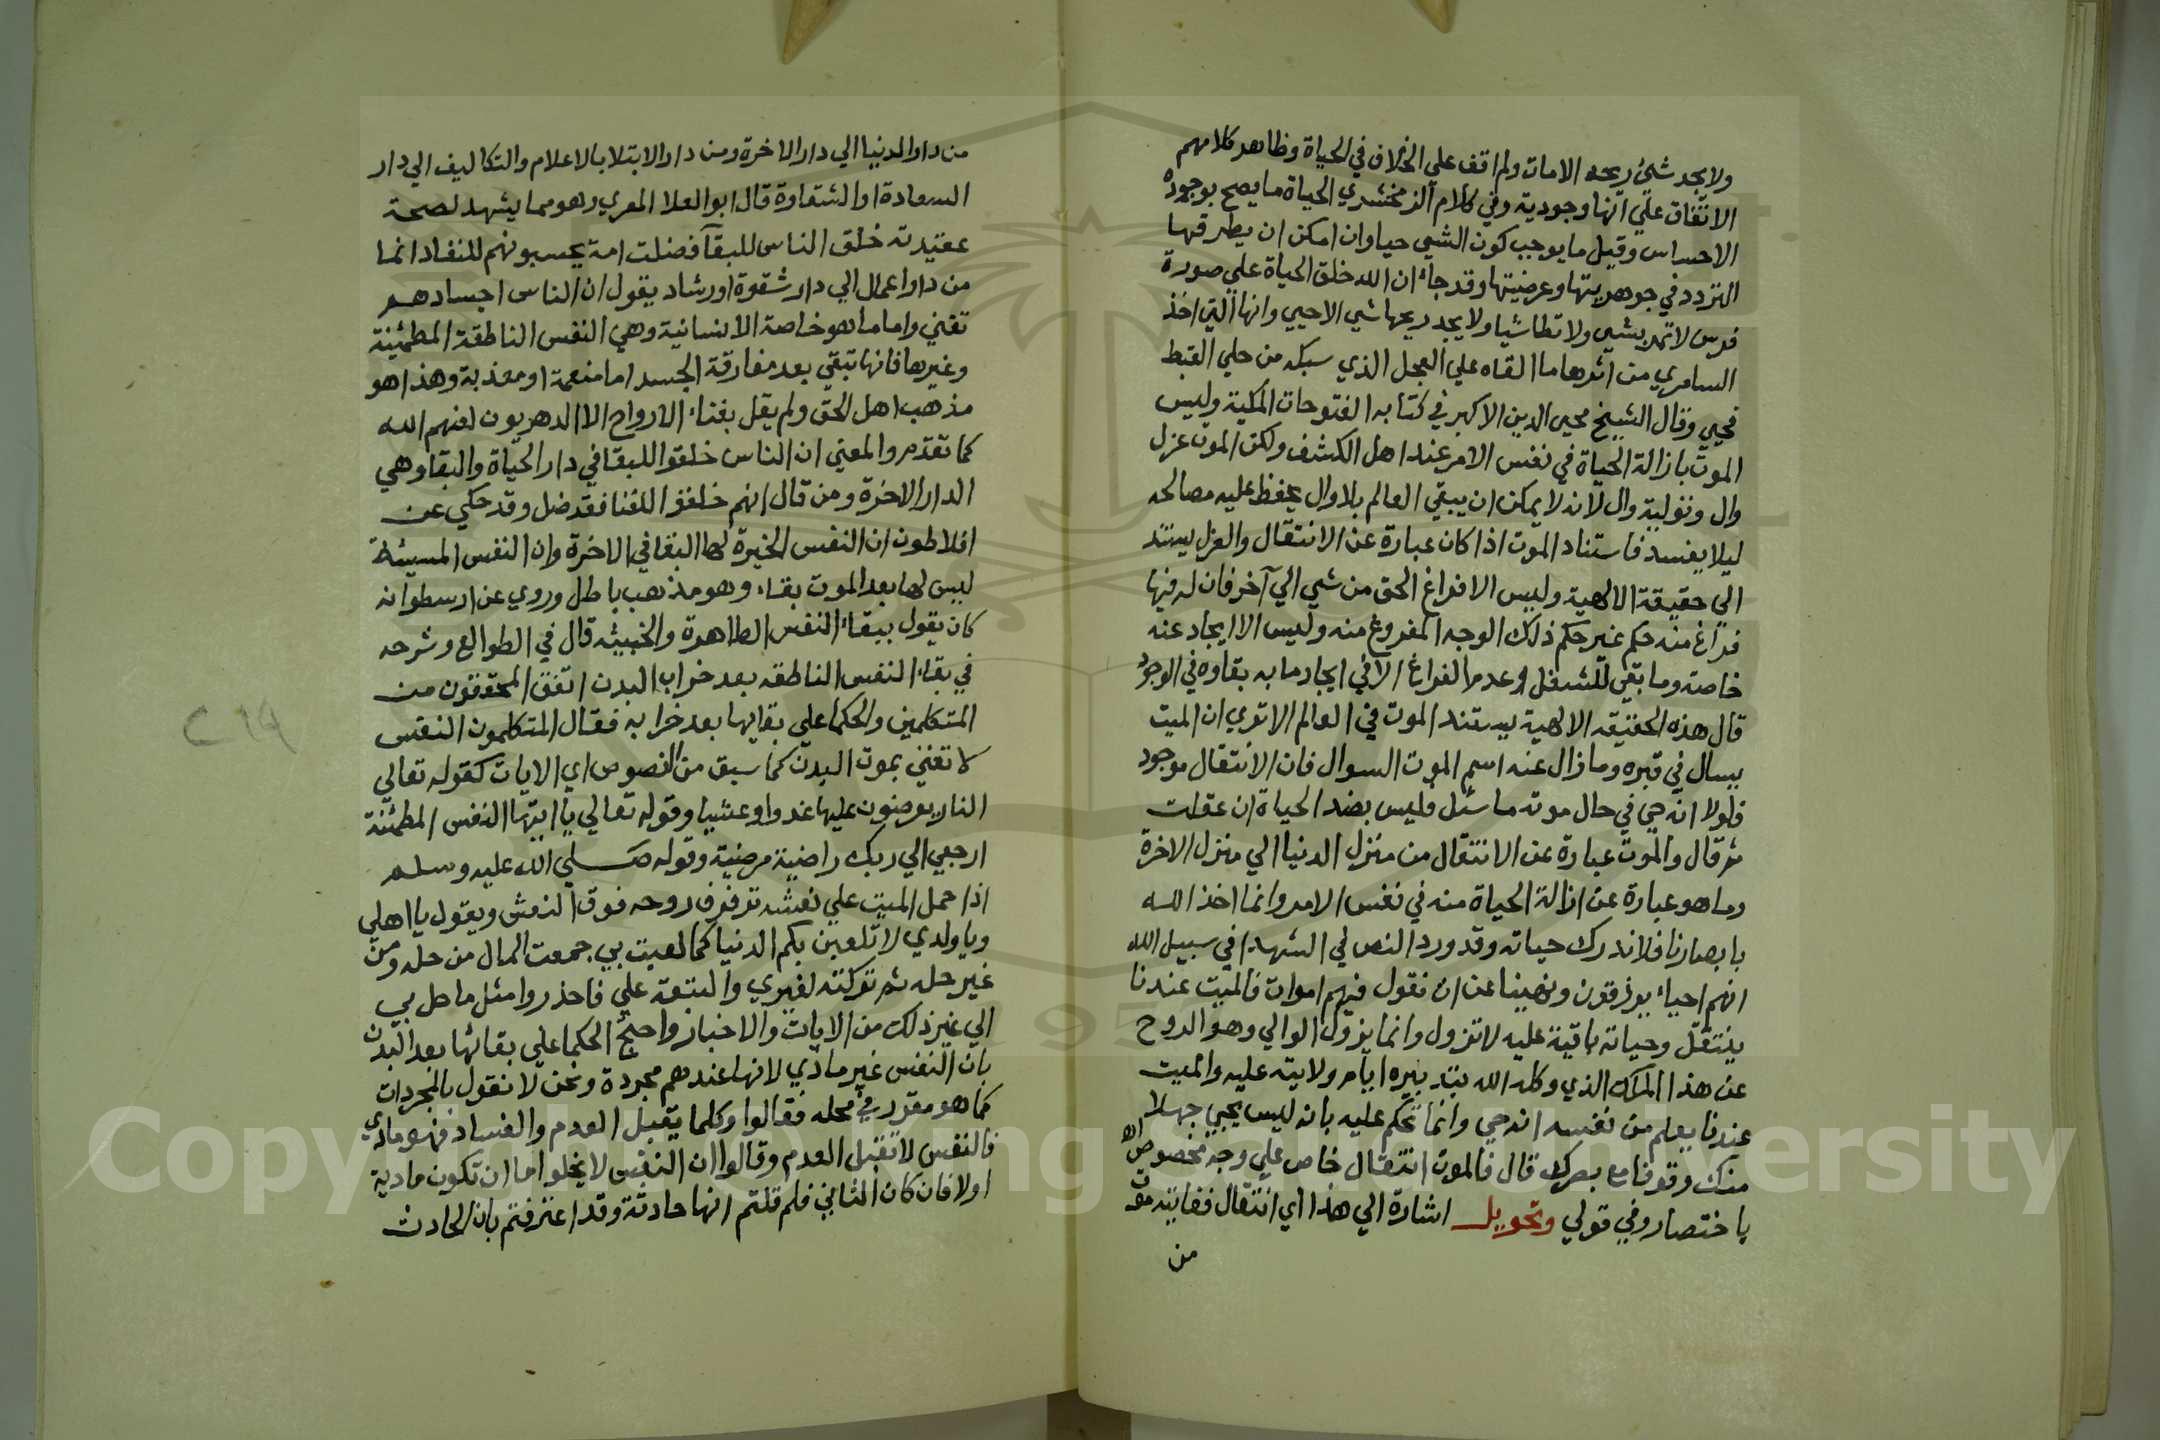 ولا يجد شئ ريحه الامات ولم اقف علي الخلاف في الحياة وظاهر كلامهم
الاتفاق علي انها وجودية وفي كلام الزمخشري الحياة ما يصح بوجوده
الاحساس وقيل ما يوجب كون الشي حيا وان امكن ان يطرقها
التردد في جوهريتها وعرضيتها وقد جاء ان الله خلق الحياة علي صورة
فرس لا تمر بشي ولا تطا شيا ولا يجد ريحها شي الاحيي وانها التي اخذ
السامري من اثرها ما القاه علي العجل الذي سبكه من حلي القبط
فحيي وقال الشيخ محيي الدين الاكبر في كتابه الفتوحات المكية وليس
الموت بازالة الحياة في نفس الامر عند اهل الكشف ولكن الموت عزل
وال وتولية وال لانه لا يمكن ان يبقي العالم بلا وال يحفظ عليه مصالحه
ليلا يفسد فاستناد الموت اذا كان عبارة عن الانتقال والعزل يستند
الي حقيقة الالهية وليس الا فراغ الحق من شي الي آخر فان له فيها
فراغ منه حكم غير حكم ذلك الوجه المفروغ منه وليس الا ايجاد عنه
خاصة وما بقي للشغل او عدم الفراغ الا في ايجاد ما به بقاوه في الوجود
قال هذه الحقيقه الالهية يستند الموت في العالم الا تري ان الميت
يسال في قبره وما زال عنه اسم الموت السوال فان الانتقال موجود
فلولا انه حي في حال موته ما سئل فليس بضد الحياة ان عقلت
ثم قال والموت عبارة عن الانتقال من منزل الدنيا الي منزل الاخرة
وما هو عبارة عن ازالة الحياة منه في نفس الامر وانما اخذ الله
بابصارنا فلا ندرك حياته وقد ورد النص في الشهدا في سبيل الله
انهم احياء يرزقون ونهينا عن ان نقول فيهم اموات فالميت عندنا
ينتقل وحياته باقية عليه لا تزول وانما يزول الوالي وهو الروح
عن هذا الملك الذي وكله الله بتدبيره ايام ولايته عليه والميت
عندنا يعلم من نفسه انه حي وانما تحكم عليه بانه ليس بحي جهلا
منك وقوفا مع بصرك قال فالموت انتقال خاص علي وجه مخصوص اه
باختصار وفي قولي وتحويل اشارة الي هذا اي انتقال فغايته موت
من
من دار الدنيا الي دار الاخرة ومن دار الابتلا بالاعلام والتكاليف الي دار
السعادة او الشقاوة قال ابو العلا المعري وهو مما يشهد لصحة
عقيدته خلق الناس للبقآ فضلت امة يحسبونهم للنفاد انما
من دار اعمال الي دار شقوة او رشاد يقول ان الناس اجسادهم
تفني واما ما هو خاصة الانسانية وهي النفس الناطقة المطمئنة
وغيرها فانها تبقي بعد مفارقة الجسد اما منعمة او معذبة وهذا هو
مذهب اهل الحق ولم يقل بفناء الارواح الا الدهريون لعنهم الله
كما تقدم والمعني ان الناس خلقوا للبقا في دار الحياة والبقا وهي
الدار الاخرة ومن قال انهم خلقوا للفنا فقد ضل وقد حكي عن
افلاطون ان النفس الخيرة لها البقا في الاخرة وان النفس المسيئة
ليس لها بعد الموت بقاء وهو مذهب باطل وروي عن ارسطوا انه
كان يقول ببقاء النفس الطاهرة والخبيثه قال في الطوالع وشرحه
في بقاء النفس الناطقه بعد خراب البدن اتفق المحققون من
المتكلمين والحكما علي بقايها بعد خرابه فقال المتكلمون النفس
لا تفني بموت البدن كما سبق من النصوص اي الايات كقوله تعالي
النار يعرضون عليها غدوا وعشيا وقوله تعالي يا ايتها النفس المطمئنة
ارجعي الي ربك راضية مرضية وقوله صلي الله عليه وسلم
اذا حمل الميت علي نعشه ترفرف روحه فوق النعش ويقول يا اهلي
ويا ولدي لا تلعبن بكم الدنيا كما لعبت بي جمعت المال من حله ومن
غير حله ثم تركته لغيري والتبعة علي فاحذروا مثل ما حل بي
الي غير ذلك من الايات والاخبار واحتج الحكما علي بقائها بعد البدن
بان النفس غير مادي لانها عندهم مجردة ونحن لا نقول بالمجردات
كما هو مقرر في محله فقالوا وكلما يقبل العدم والفساد فهو مادي
فالنفس لا تقبل العدم وقالوا ان النفس لا يخلو اما ان تكون مادية
اولا فان كان الثاني فلم قلتم انها حادثة وقد اعترفتم بان الحادث
٢١٩
Copyright © King Saud University